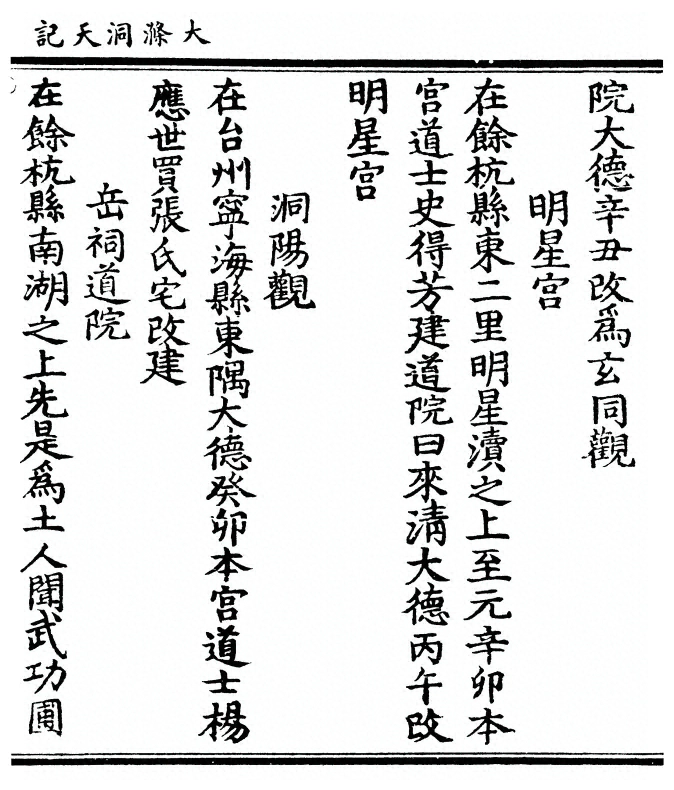 大滌洞天記
院大德辛丑改爲玄同觀
明星宮
在餘杭縣東二里明星瀆之上至元辛卯本
宮道士史得芳建道院曰來清大德丙午改
明星宮
洞陽觀
在台州寧海縣東隅大德癸卯本宮道士楊
應世買張氏宅改建
岳祠道院
在餘杭縣南湖之上先是爲土人聞武功圃